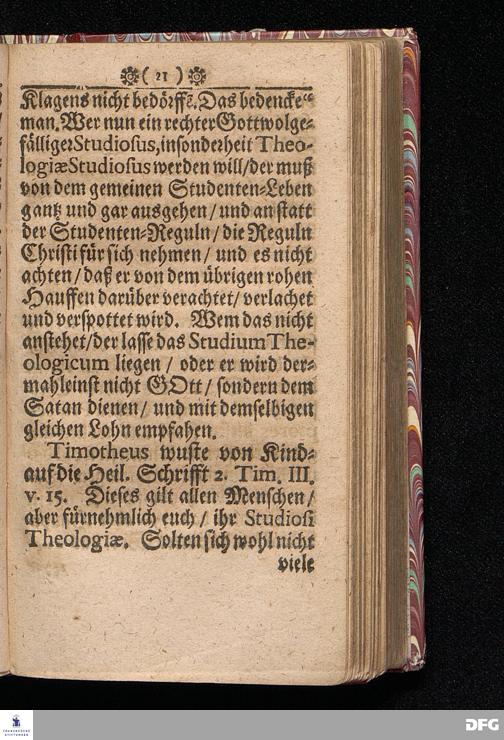 ( 21 )
Klagens nicht bedörffē. Das bedencke
man. Wer nun ein rechter Gottwolge-
fälliger Studiosus, insonderheit Theo-
logiæ Studiosus werden will / der muß
von dem gemeinen Studenten-Leben
gantz und gar ausgehen / und an statt
der Studenten-Reguln / die Reguln
Christi für sich nehmen / und es nicht
achten / daß er von dem übrigen rohen
Hauffen darüber verachtet / verlachet
und verspottet wird. Wem das nicht
anstehet / der lasse das Studium The-
ologicum liegen / oder er wird der-
mahleinst nicht GOtt / sondern dem
Satan dienen / und mit demselbigen
gleichen Lohn empfahen.
Timotheus wuste von Kind-
auf die Heil. Schrifft 2. Tim. III.
v. 15. Dieses gilt allen Menschen /
aber fürnehmlich euch / ihr Studiosi
Theologiæ. Solten sich wohl nicht
viele
FRANCKESCHE
STIFTUNGEN
DFG